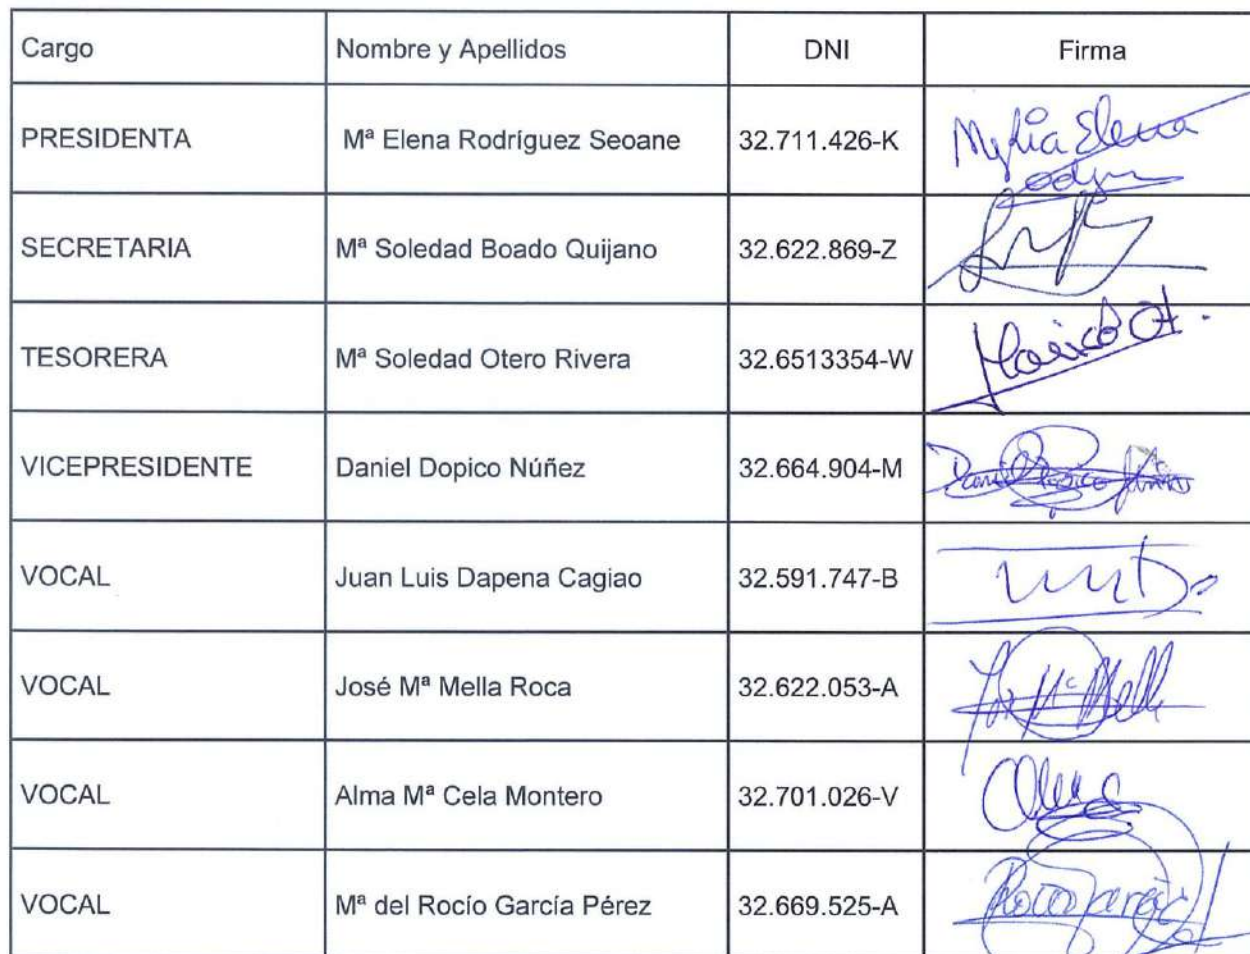 Cargo Nombre y Apellidos DNI Firma
PRESIDENTA Mª Elena Rodríguez Seoane 32.711.426-K
SECRETARIA Mª Soledad Boado Quijano 32.622.869-Z
TESORERA Mª Soledad Otero Rivera 32.6513354-W
VICEPRESIDENTE Daniel Dopico Núñez 32.664.904-M
VOCAL Juan Luis Dapena Cagiao 32.591.747-B
VOCAL José Mª Mella Roca 32.622.053-A
VOCAL Alma Mª Cela Montero 32.701.026-V
VOCAL Mª del Rocío García Pérez 32.669.525-A